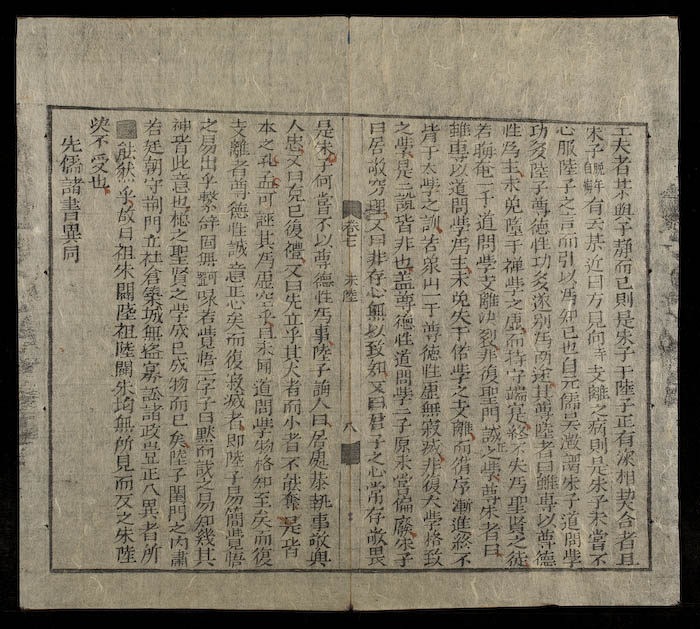 工夫者某與子靜而已則是朱子于陸子正有深相契合者且
朱子晚年自悔有云某近日方見向時支離之病則是朱子未嘗不
心服陸子之言而引以爲知己也自元儒吳澄謂朱子道問學
功多陸子尊德性功多遂別爲兩途其尊陸者曰雖專以尊德
性爲主未免墮于禪學之虛而持守端寔終不失爲聖賢之徒
若晦菴一于道問學支離決裂非復聖門誠正之學尊朱者曰
雖專以道問學爲主未免失于俗學之支離而循序漸進終不
背于大學之訓若象山一于尊德性虛無寂滅非復大學格致
之學是二說皆非也蓋尊德性道問學二子原未嘗偏廢朱子
曰居敬窮理又曰非存心無以致知又曰君子之心常存敬畏
卷七 朱陸 八
是朱子何嘗不以尊德性爲事陸子誨人曰居處恭執事敬與
人忠又曰克己復禮又曰先立乎其大者而小者不能奪是皆
本之孔孟可誣其爲虛空乎且未聞道問學物格知至矣而復
支離者尊德性誠意正心矣而復寂滅者即陸子易簡覺悟
之易出乎繫辭固無剩啄若覺悟二字子曰默而識之易知幾其
神皆此意也總之聖賢之學成己成物而已矣陸子閨門之内肅
若廷朝守荆門立社倉築城無盜寡訟諸政豈正八異者所
能然乎故曰祖朱闢陸祖陸闢朱均無所見而反之朱陸
決不受也
先儒諸書異同